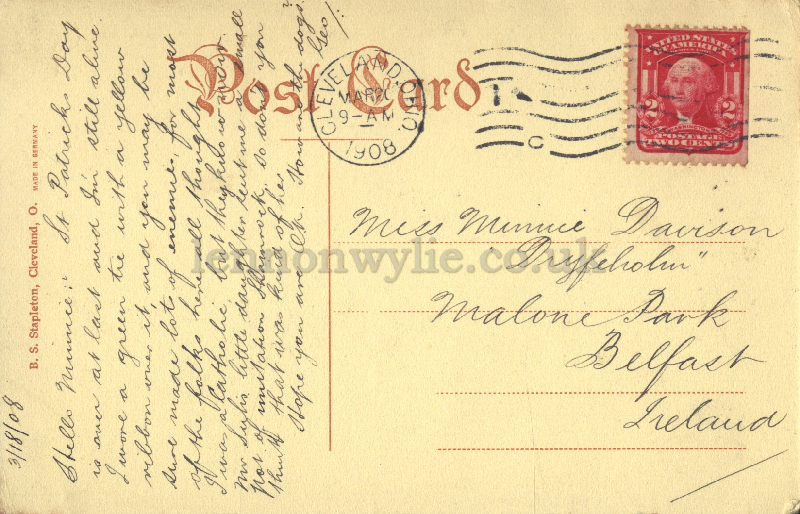 Post Card
CLEVELAND, OHIO
MAR 20
9-AM
1908
UNITED STATES
OF AMERICA
2 2
POSTAGE
TWO CENTS
Miss Minnie Davison
"Dryfeholm"
Malone Park
Belfast
Ireland
lennonwylie.co.uk
B. S. Stapleton, Cleveland, O. MADE IN GERMANY
3/18/08
Hello Minnie: St Patricks Day
is over at last and I'm still alive.
I wore a green tie with a yellow
ribbon over it, and you may be
sure made lots of enemies, for most
of the folks here all thought
I was a Catholic, but they know now.
Mr little daughter sent me a small
pot of imitation Shamrock, so dont you
think that was kind of her.
Hope you are Ok. How are the dogs?
Geo/